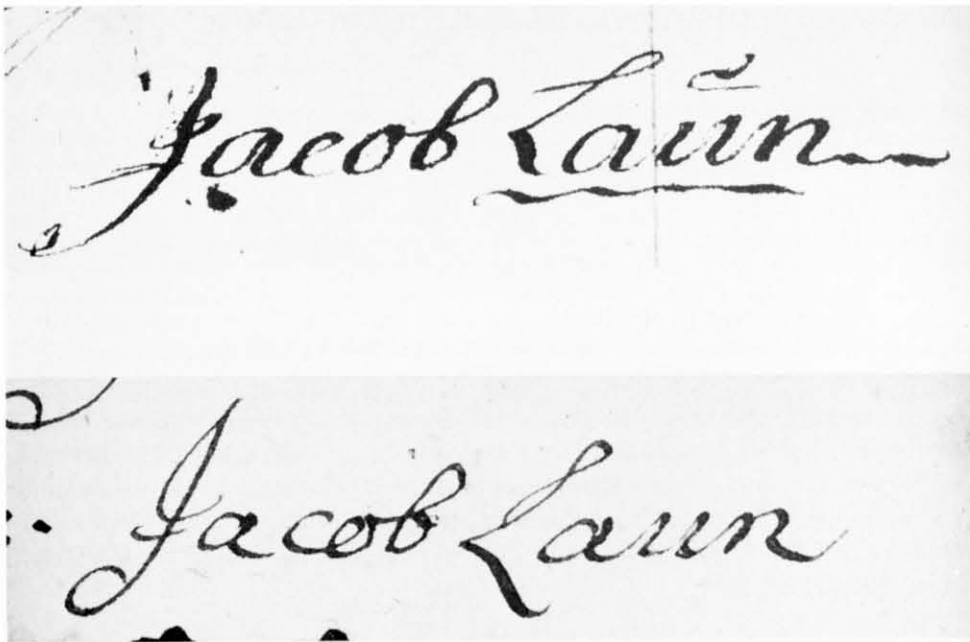 Jacob Laŭn
Jacob Laun